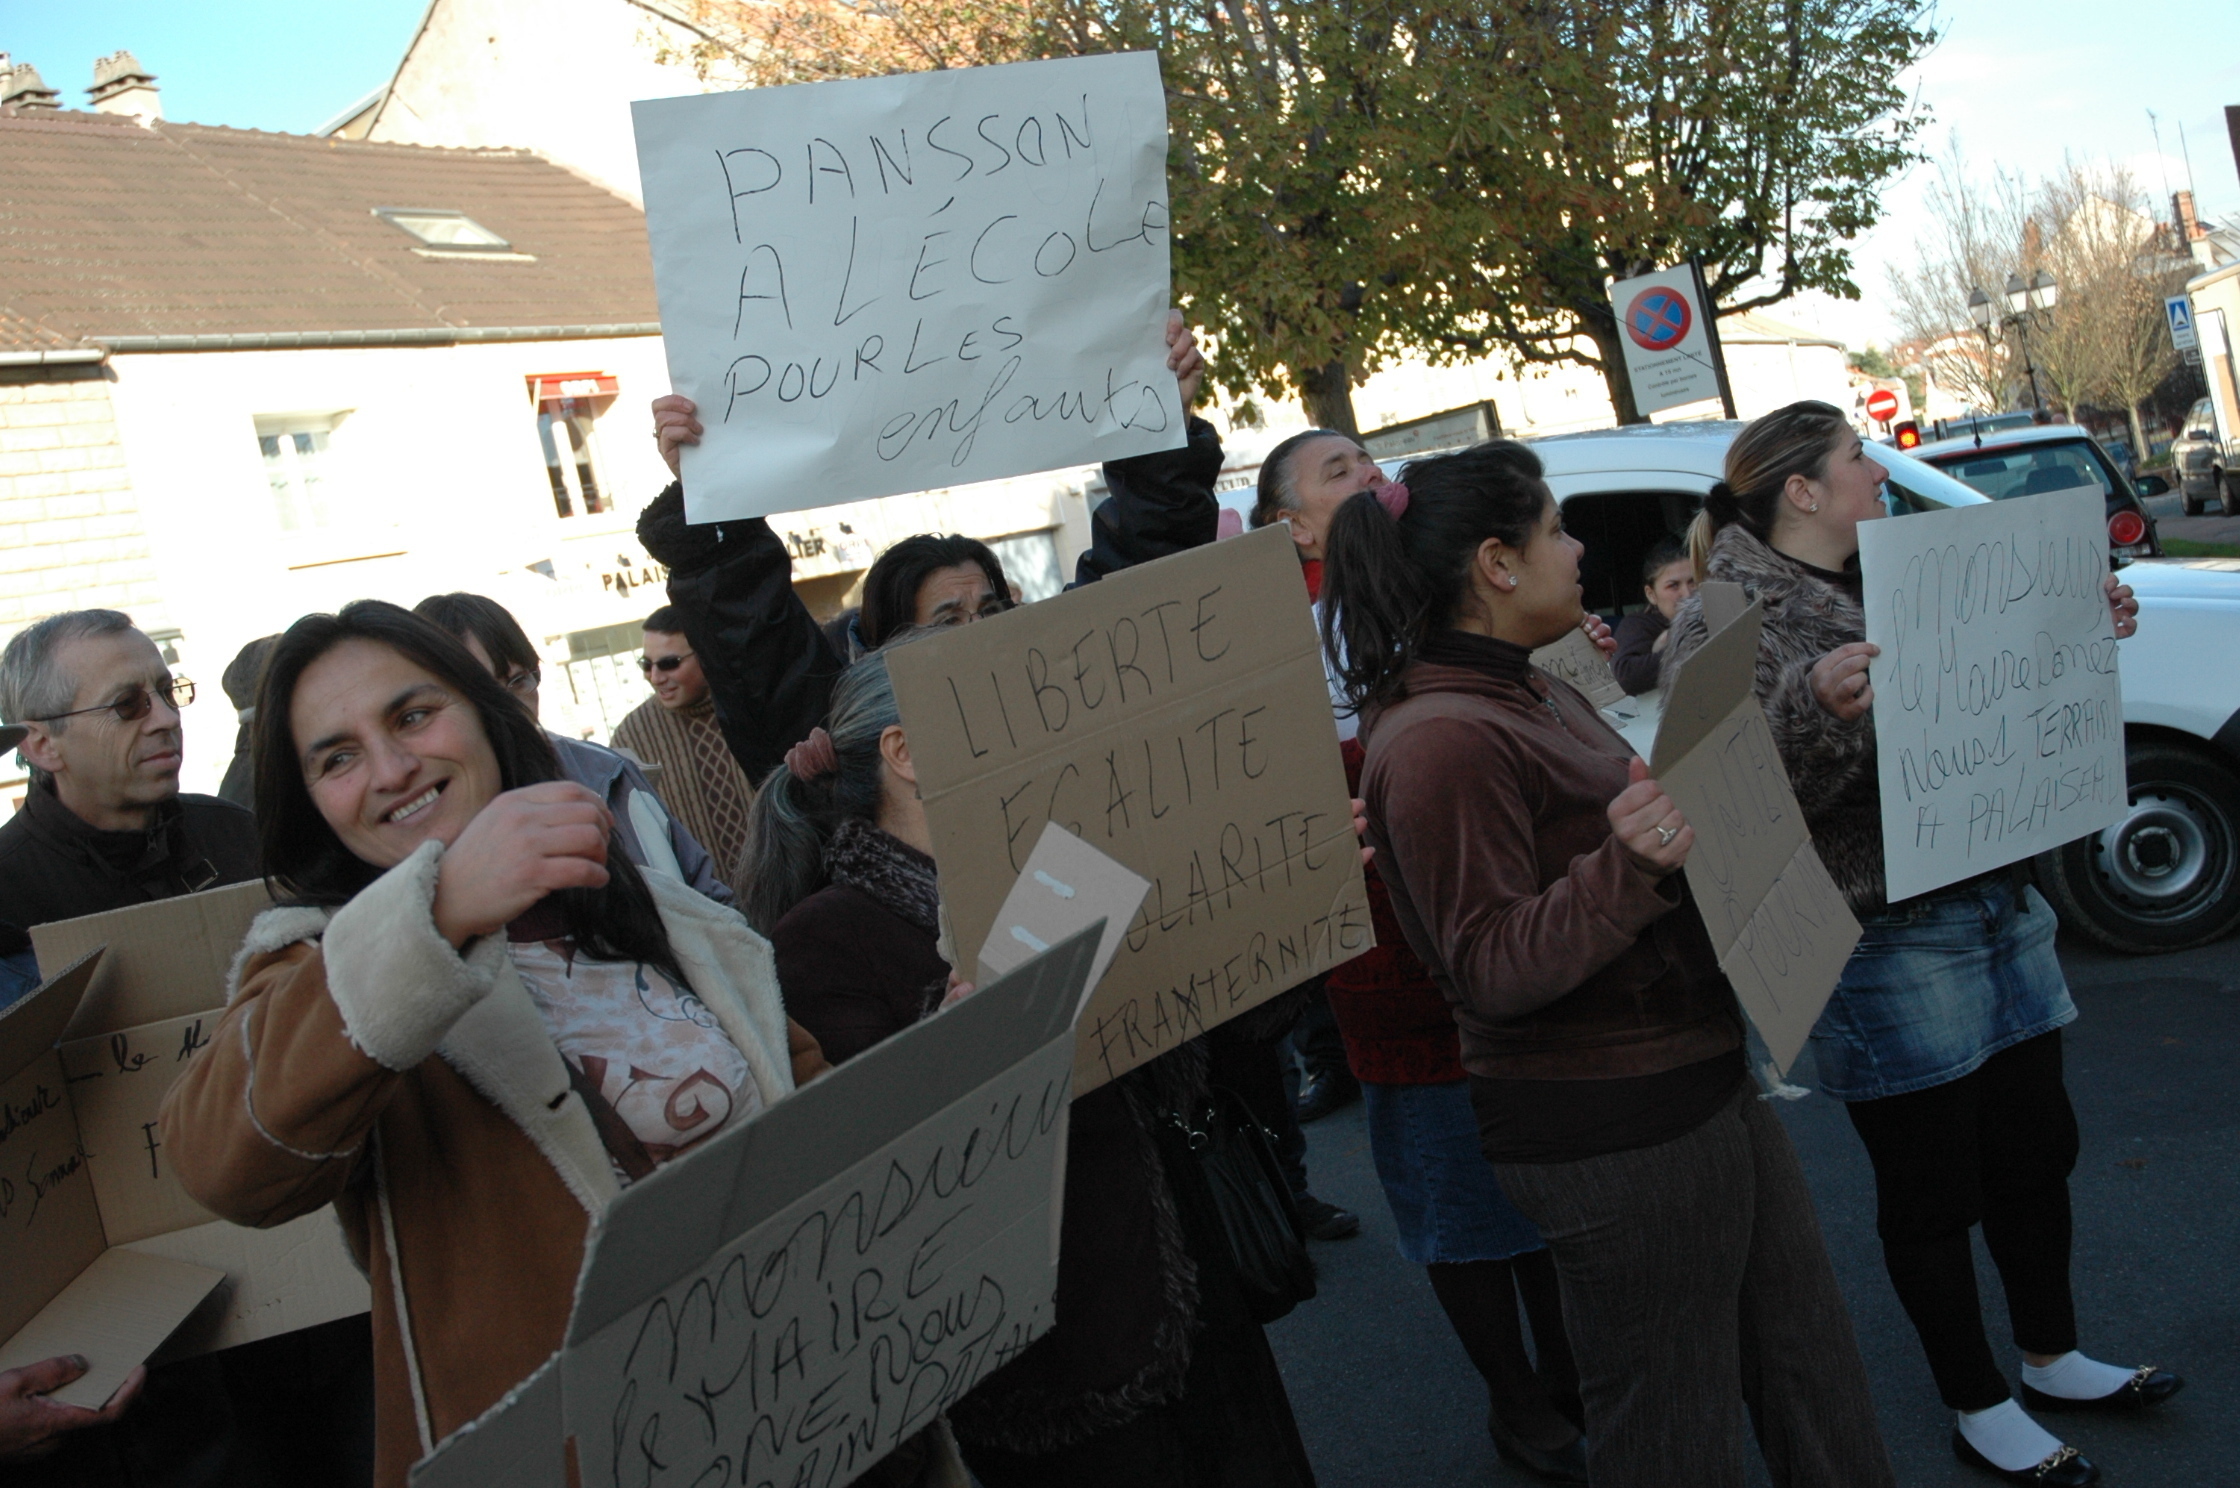 PANSSON
A LÉCOLE
POUR LES
enfants
LIBERTE
EGALITE
OLARITE
FRATERNITE
monsieur
le Maire Donez
Nous 1 TERRAIN
A PALAISEAU
UNITE
POUR
monsieur
le MAIRE
ONE NOUS
RAIN PALAI
le M
F
PALAIS
LIER
STATIONNEMENT LIMITÉ